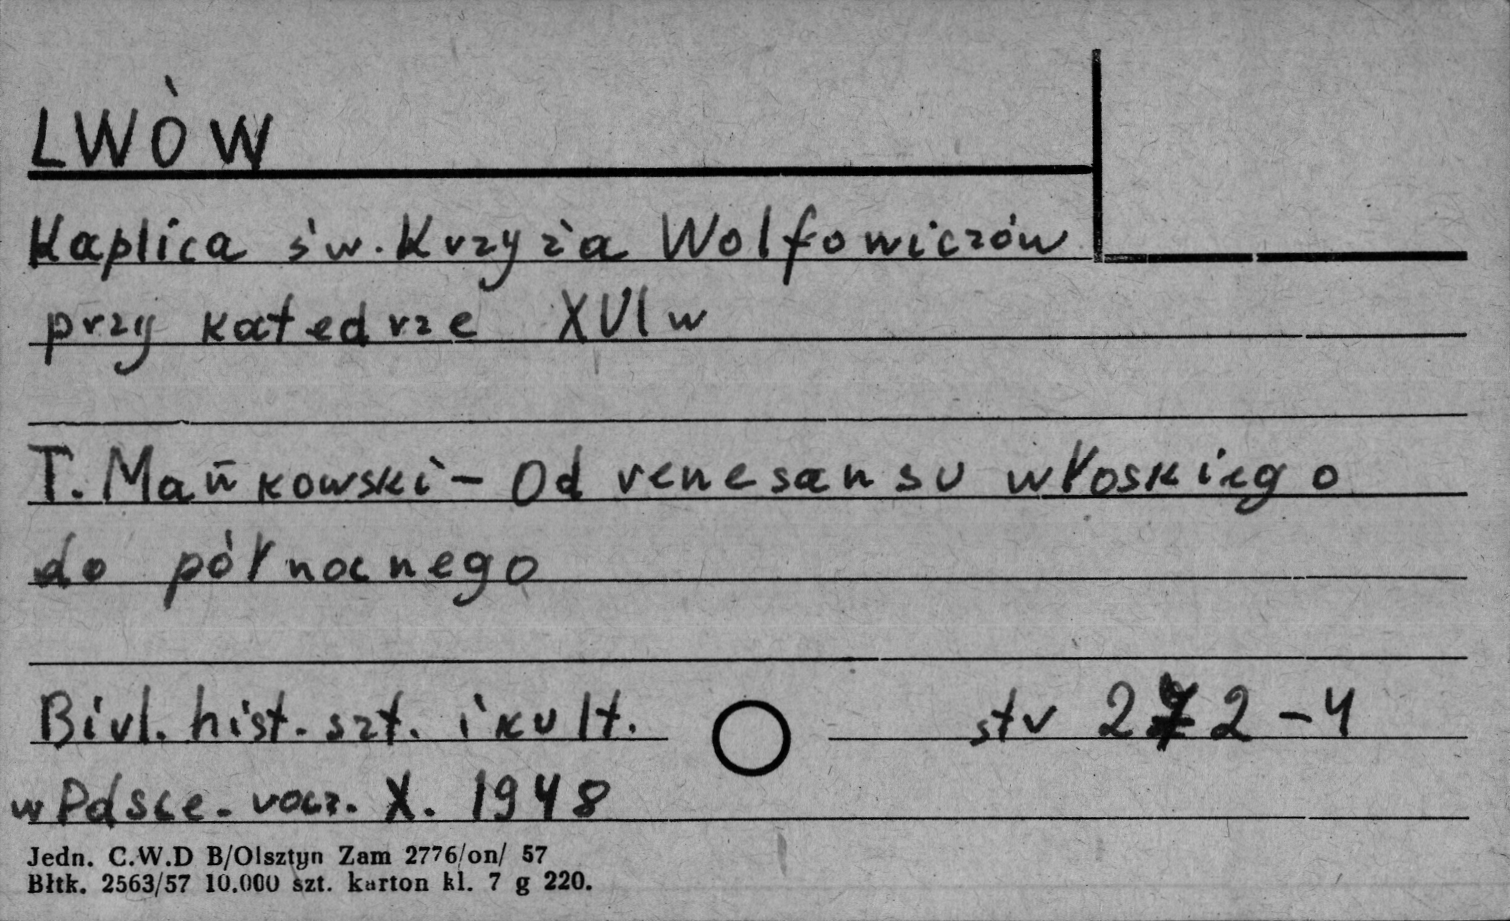 LWÓW
Kaplica św. Krzyża Wolfowiczów
przy katedrze XVI w
T. Mańkowski - Od renesansu włoskiego
do północnego
Biul. hist. szt. i kult.
str 272-4
w Polsce. rocz. X. 1948
Jedn. C.W.D B/Olsztyn Zam 2776/on/ 57
Błtk. 2563/57 10.000 szt. karton kl. 7 g 220.